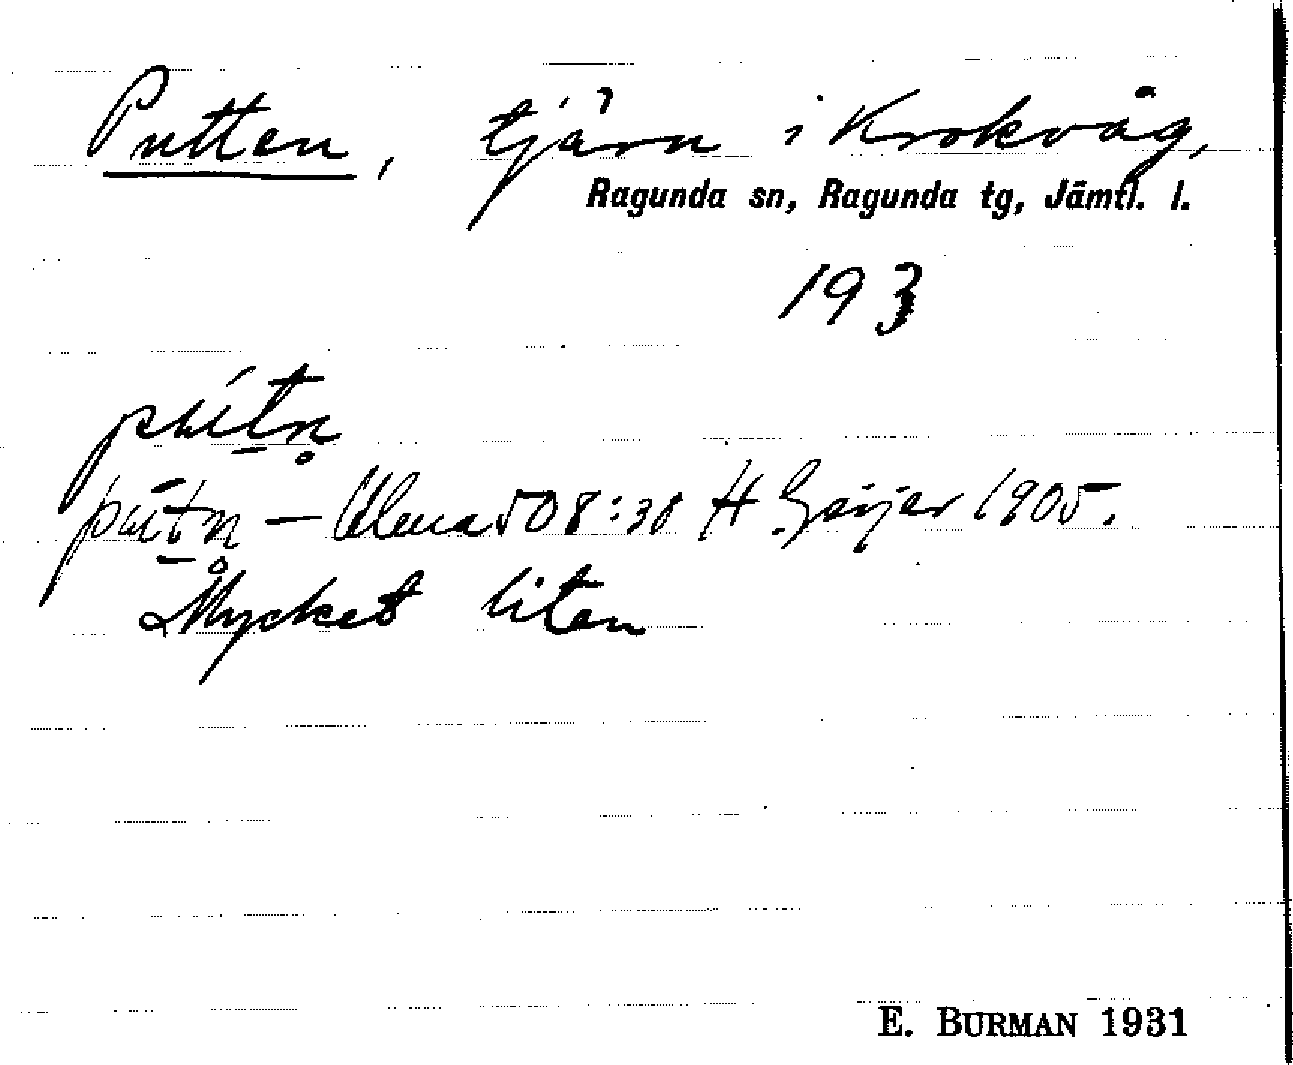 Putten, tjärn i Krokvåg,
Ragunda sn, Ragunda tg, Jämtl. l.
193
pùtn̥
pùtn̥ – 508:38 H. Geijer 1905.
Mycket liten
E. BURMAN 1931